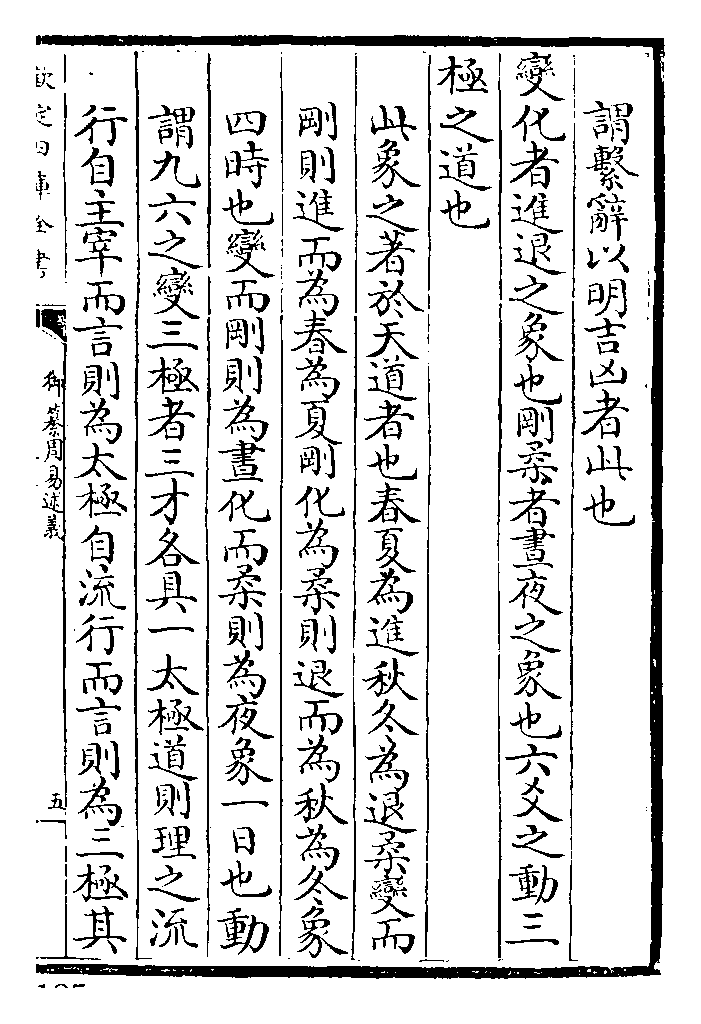 謂繫辭以明吉凶者此也
變化者進退之象也剛柔者晝夜之象也六爻之動三
極之道也
此象之著於天道者也春夏為進秋冬為退柔變而
剛則進而為春為夏剛化為柔則退而為秋為冬象
四時也變而剛則為晝化而柔則為夜象一日也動
謂九六之變三極者三才各具一太極道則理之流
行自主宰而言則為太極自流行而言則為三極其
欽定四庫全書
御纂周易述義
五